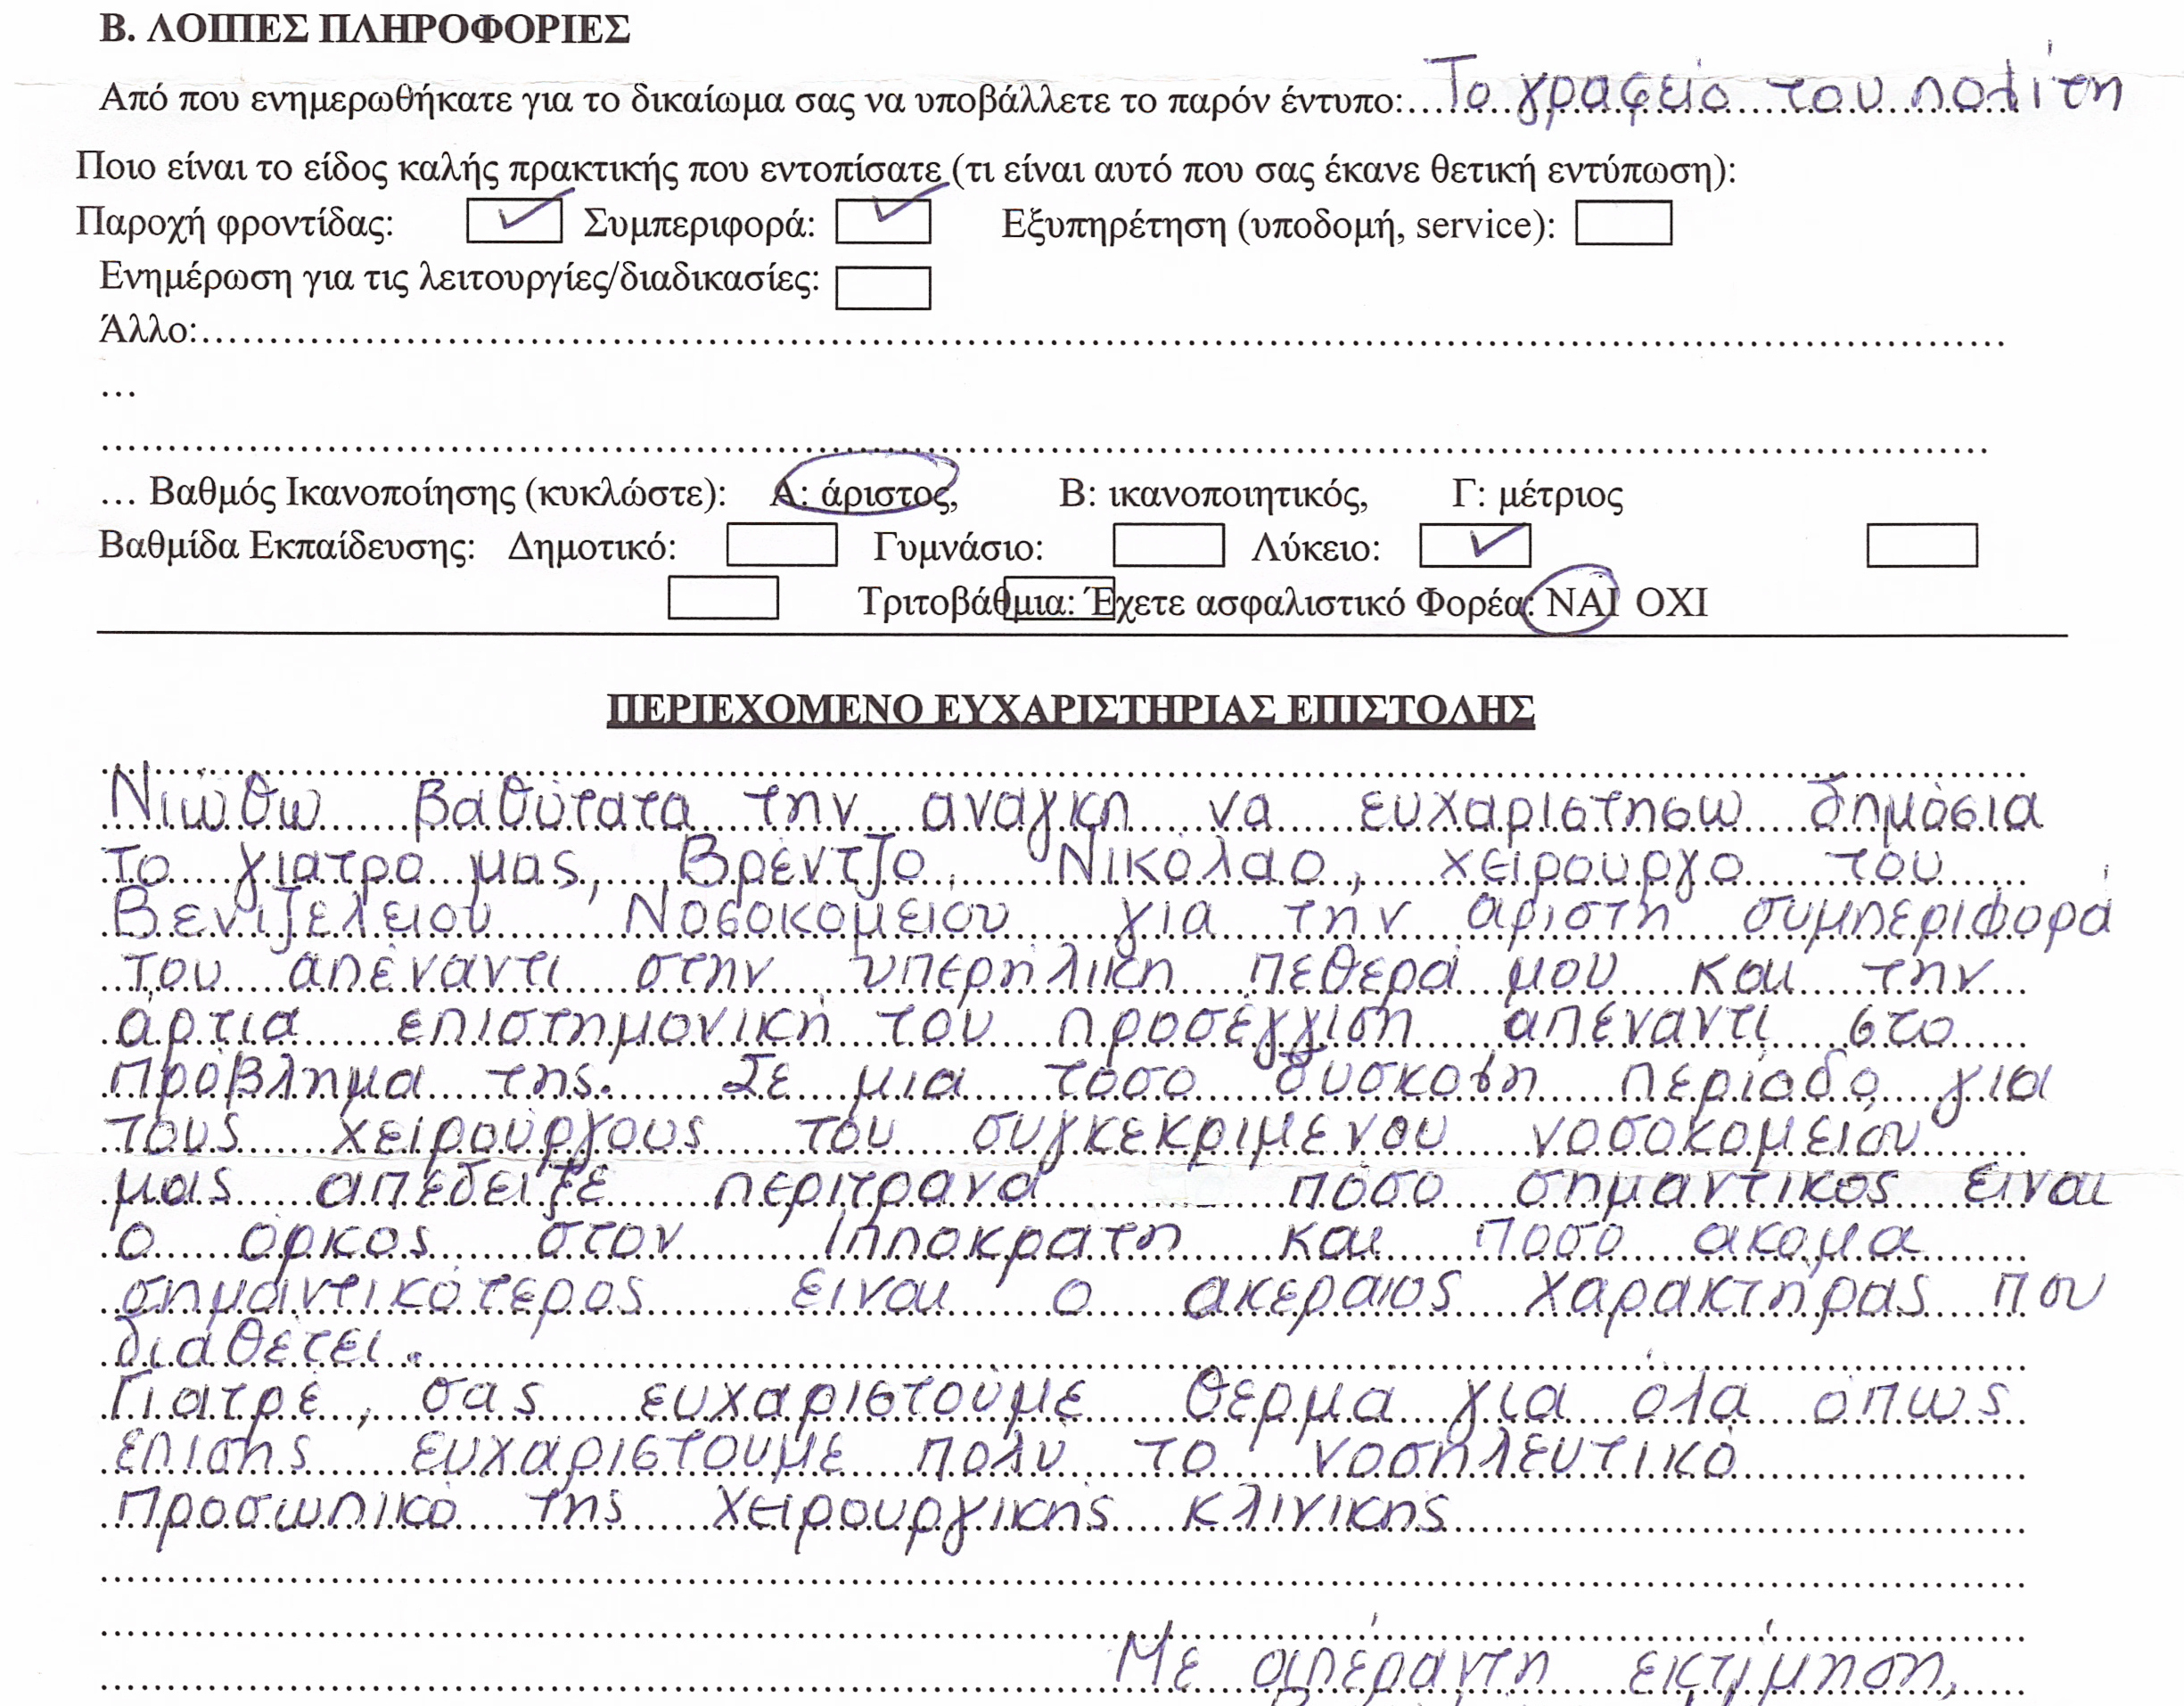 Β. ΛΟΙΠΕΣ ΠΛΗΡΟΦΟΡΙΕΣ
Από που ενημερωθήκατε για το δικαίωμα σας να υποβάλλετε το παρόν έντυπο:.... Το γραφείο του πολίτη
Ποιο είναι το είδος καλής πρακτικής που εντοπίσατε (τι είναι αυτό που σας έκανε θετική εντύπωση):
Παροχή φροντίδας: ✓ Συμπεριφορά: ✓ Εξυπηρέτηση (υποδομή, service):
Ενημέρωση για τις λειτουργίες/διαδικασίες:
Άλλο:
...
... Βαθμός Ικανοποίησης (κυκλώστε): Α: άριστος, Β: ικανοποιητικός, Γ: μέτριος
Βαθμίδα Εκπαίδευσης: Δημοτικό: Γυμνάσιο: Λύκειο: ✓
Τριτοβάθμια: Έχετε ασφαλιστικό Φορέα: ΝΑΙ ΟΧΙ
ΠΕΡΙΕΧΟΜΕΝΟ ΕΥΧΑΡΙΣΤΗΡΙΑΣ ΕΠΙΣΤΟΛΗΣ
Νιώθω βαθύτατα την ανάγκη να ευχαριστήσω δημόσια
το γιατρό μας, Βρέντζο Νικόλαο, χειρουργό του
Βενιζελείου Νοσοκομείου για την άριστη συμπεριφορά
του απέναντι στην υπερήλικη πεθερά μου και την
άρτια επιστημονική του προσέγγιση απέναντι στο
πρόβλημα της. Σε μια τόσο δύσκολη περίοδο για
τους χειρουργούς του συγκεκριμένου νοσοκομείου
μας απέδειξε περίτρανα πόσο σημαντικός είναι
ο όρκος στον Ιπποκράτη και πόσο ακόμα
σημαντικότερος είναι ο ακέραιος χαρακτήρας που
διαθέτει.
Γιατρέ, σας ευχαριστούμε θερμά για όλα όπως
επίσης ευχαριστούμε πολύ το νοσηλευτικό
προσωπικό της χειρουργικής κλινικής
Με απέραντη εκτίμηση,